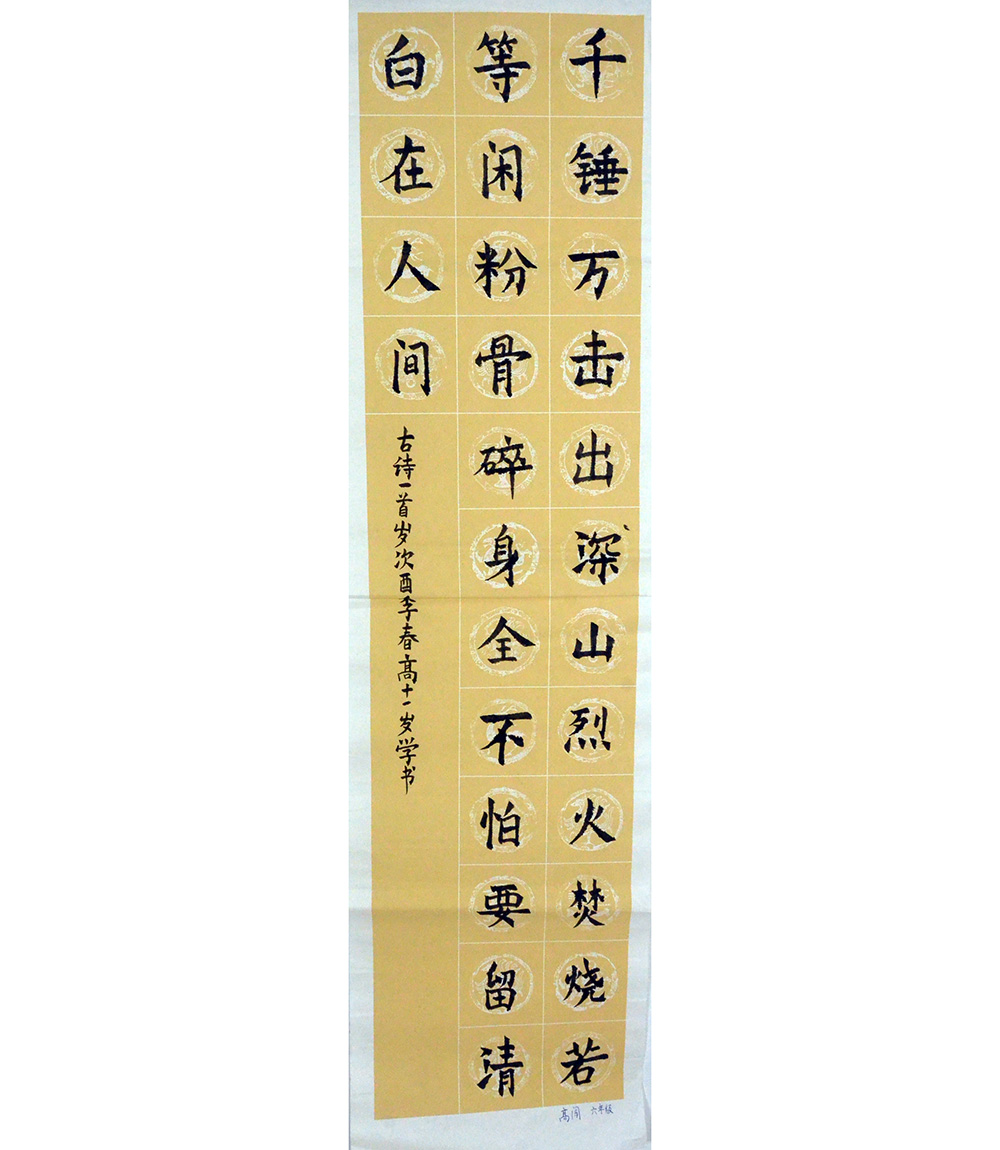 千锤万击出深山烈火焚烧若
等闲粉骨碎身全不怕要留清
白在人间
古诗一首岁次酉季春高十一岁学书
高 六年级